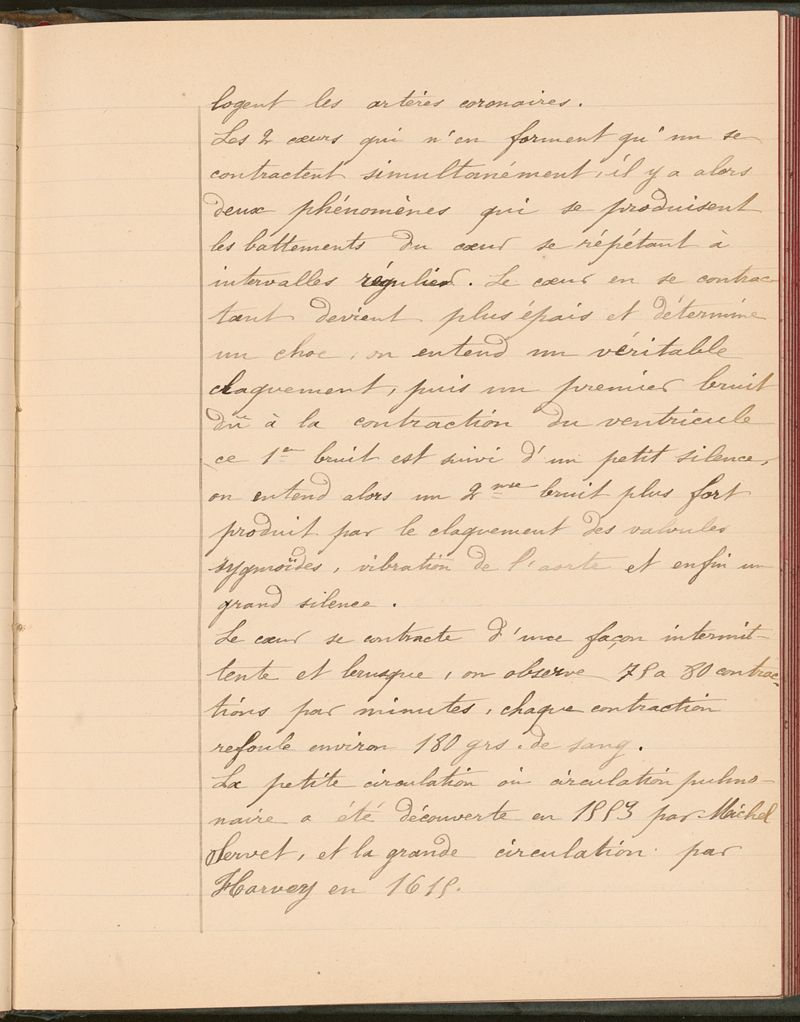 logent les artères coronaires.
Les 2 cœurs qui n'en forment qu'un se
contractent simultanément, il y a alors
deux phénomènes qui se produisent
les battements du cœur se répétant à
intervalles régulier. Le cœur en se contrac-
tant devient plus épais et détermine
un choc, on entend un véritable
claquement, puis un premier bruit
dû à la contraction du ventricule
ce 1er bruit est suivi d'un petit silence,
on entend alors un 2me bruit plus fort
produit par le claquement des valvules
sygmoïdes, vibration de l'aorte et enfin un
grand silence.
Le cœur se contracte d'une façon intermit-
tente et brusque, on observe 75 a 80 contrac-
tions par minutes, chaque contraction
refoule environ 180 grs. de sang.
La petite circulation ou circulation pulmo-
naire a été découverte en 1553 par Michel
Servet, et la grande circulation par
Harvey en 1615.